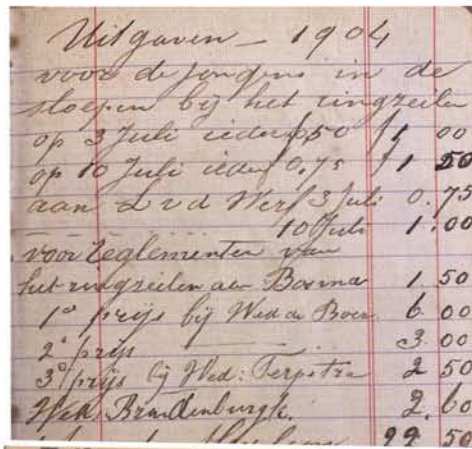 Uitgaven - 1904
voor de jongens in de
sloepen bij het ringzeilen
op 3 Juli ieder 0,50 f 1 00
op 10 Juli ieder 0,75 f 1 50
aan L v d Werf 3 Juli 0.75
10 Juli 1.00
voor reglementen van
het ringzeilen aan Bosma 1 50
1e prijs bij Wed de Boer 6 00
2e prijs 3 00
3e prijs bij Wed: Terpstra 2 50
Wed. Brandenburgh. 2.60
22 50